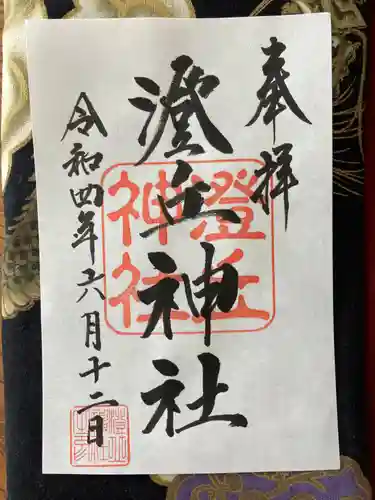 奉拝
澄丘神社
澄丘神社
令和四年六月十二日